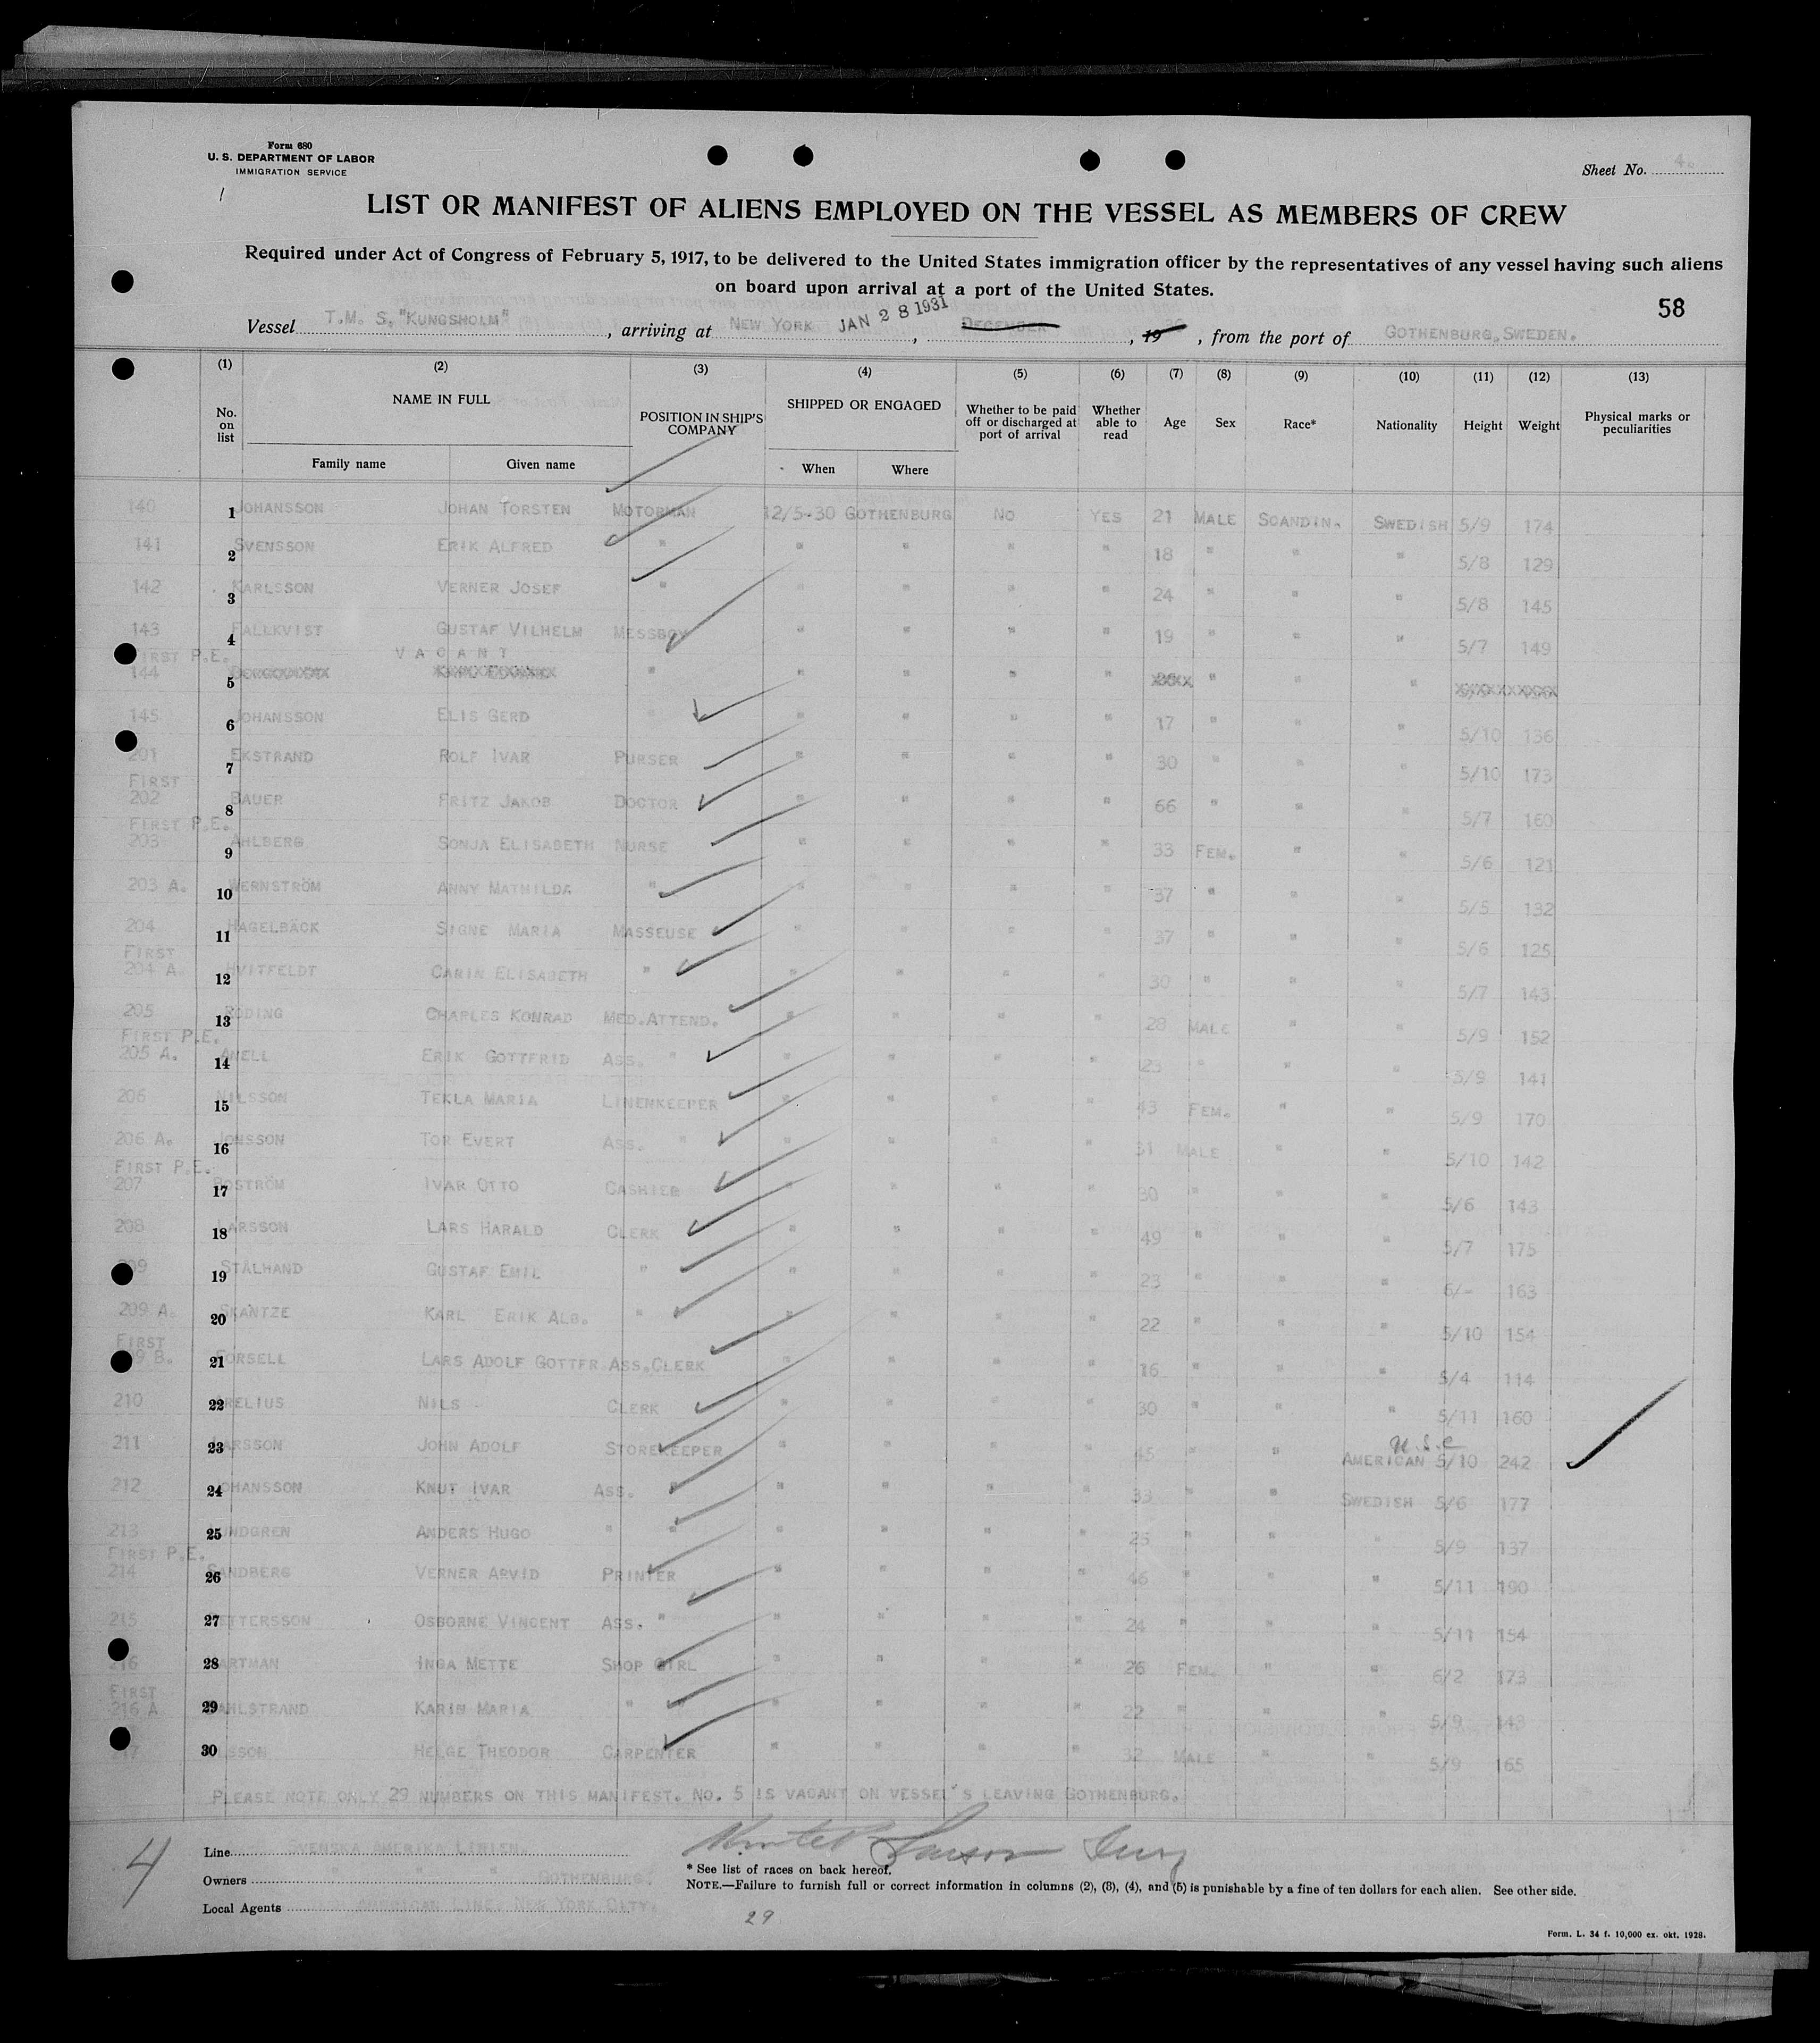 Form 680
U. S. DEPARTMENT OF LABOR
IMMIGRATION SERVICE
Sheet No. 4.
LIST OR MANIFEST OF ALIENS EMPLOYED ON THE VESSEL AS MEMBERS OF CREW
Required under Act of Congress of February 5, 1917, to be delivered to the United States immigration officer by the representatives of any vessel having such aliens
on board upon arrival at a port of the United States.
58
Vessel T.M. S. "KUNGSHOLM", arriving at NEW YORK JAN 28 1931, DECEMBER, 19, from the port of GOTHENBURG, SWEDEN.
(1) (2) (3) (4) (5) (6) (7) (8) (9) (10) (11) (12) (13)
No. on list NAME IN FULL Family name Given name POSITION IN SHIP'S COMPANY SHIPPED OR ENGAGED When Where Whether to be paid off or discharged at port of arrival Whether able to read Age Sex Race* Nationality Height Weight Physical marks or peculiarities
140 1 JOHANSSON JOHAN TORSTEN MOTORMAN 12/5-30 GOTHENBURG NO YES 21 MALE SCANDIN. SWEDISH 5/9 174
141 2 SVENSSON ERIK ALFRED " " " " " 18 " " " 5/8 129
142 3 KARLSSON VERNER JOSEF " " " " " 24 " " " 5/8 145
143 4 FALLKVIST GUSTAF VILHELM MESSBOY " " " " 19 " " " 5/7 149
FIRST P.E. VACANT
144 5 " " " " " XXXX " " " XXXXXXXXXX
145 6 JOHANSSON ELIS GERD " " " " 17 " " " 5/10 136
201 7 EKSTRAND ROLF IVAR PURSER " " " " 30 " " " 5/10 173
FIRST
202 8 BAUER FRITZ JAKOB DOCTOR " " " " 66 " " " 5/7 160
FIRST P.E.
203 9 AHLBERG SONJA ELISABETH NURSE " " " " 33 FEM. " " 5/6 121
203 A. 10 WERNSTRÖM ANNY MATHILDA " " " " " 37 " " " 5/5 132
204 11 HAGELBÄCK SIGNE MARIA MASSEUSE " " " " 37 " " " 5/6 125
FIRST
204 A 12 HVITFELDT CARIN ELISABETH " " " " " 30 " " " 5/7 143
205 13 CHARLES KONRAD MED.ATTEND. " " " " 28 MALE " " 5/9 152
FIRST P.E.
205 A. 14 ERIK GOTTFRID ASS. " " " " " 23 " " " 5/9 141
206 15 NILSSON TEKLA MARIA LINENKEEPER " " " " 43 FEM. " " 5/9 170
206 A. 16 JONSSON TOR EVERT ASS. " " " " " 31 MALE " " 5/10 142
FIRST P.E.
207 17 BOSTRÖM IVAR OTTO CASHIER " " " " 30 " " " 5/6 143
208 18 LARSSON LARS HARALD CLERK " " " " 49 " " " 5/7 175
209 19 STÅLHAND GUSTAF EMIL " " " " " 23 " " " 6/- 163
209 A. 20 SKANTZE KARL ERIK ALB. " " " " " 22 " " " 5/10 154
FIRST
209 B. 21 FORSELL LARS ADOLF GOTTFR ASS.CLERK " " " " 16 " " " 5/4 114
210 22 ARELIUS NILS CLERK " " " " 30 " " " 5/11 160
U.S.C
211 23 LARSSON JOHN ADOLF STOREKEEPER " " " " 45 " " AMERICAN 5/10 242
212 24 JOHANSSON KNUT IVAR ASS. " " " " " 33 " " SWEDISH 5/6 177
213 25 LUNDGREN ANDERS HUGO " " " " " " 25 " " " 5/9 137
FIRST P.E.
214 26 SANDBERG VERNER ARVID PRINTER " " " " 46 " " " 5/11 190
215 27 PETTERSSON OSBORNE VINCENT ASS. " " " " " 24 " " " 5/11 154
216 28 HARTMAN INGA METTE SHOP GIRL " " " " 26 FEM. " " 6/2 173
FIRST
216 A 29 KARIN MARIA " " " " " " 22 " " " 5/9 143
217 30 HELGE THEODOR CARPENTER " " " " 32 MALE " " 5/9 165
PLEASE NOTE ONLY 29 NUMBERS ON THIS MANIFEST. NO. 5 IS VACANT ON VESSEL'S LEAVING GOTHENBURG.
4
Line SVENSKA AMERIKA LINIEN.
Owners " " " GOTHENBURG.
Local Agents AMERICAN LINE, NEW YORK CITY.
* See list of races on back hereof.
NOTE.—Failure to furnish full or correct information in columns (2), (3), (4), and (5) is punishable by a fine of ten dollars for each alien. See other side.
29
Form. L. 34 f. 10,000 ex. okt. 1928.